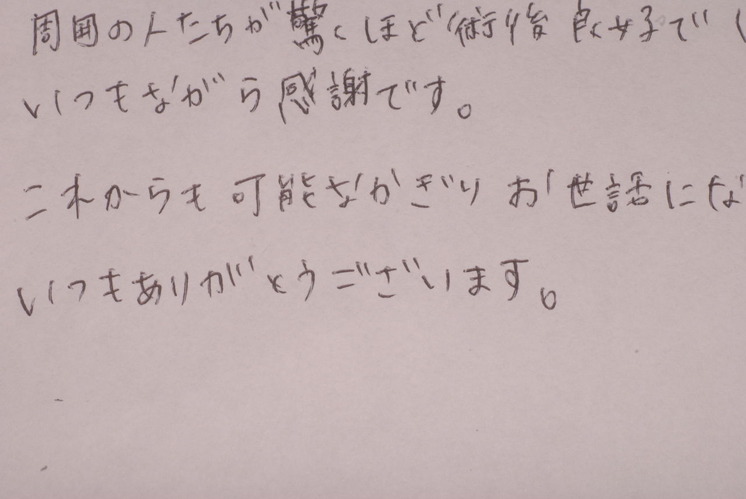 周囲の人たちが驚くほど術後良好で
いつもながら感謝です。
これからも可能なかぎりお世話にな
いつもありがとうございます。